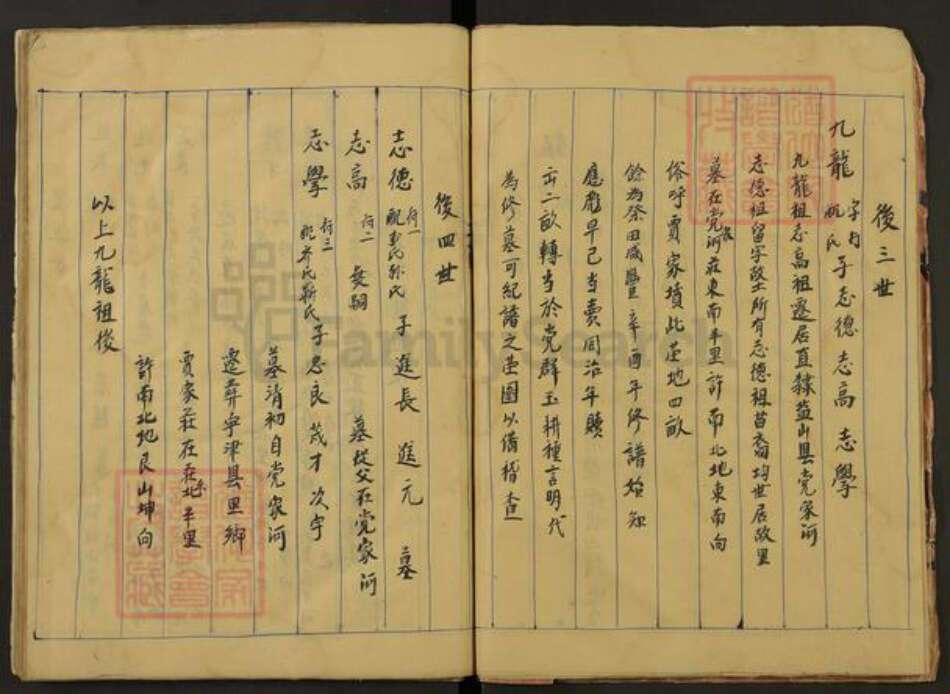 後三世
九龍 字 行 配 氏 子志德 志高 志學
九龍祖志高祖遷居直隸盐山县党家河
志德祖留守故土所有志德祖苗裔均世居故里
墓在党家河莊東南半里許南北地東南向
俗呼賈家墳此塋地四畝
餘為祭田咸豐辛酉年修譜始知
應彪早已当賣同治年贖
出二畝轉当於党群玉耕種言明代
為修墓可紀譜之塋圖以備稽查
後四世
志德 行一 配 氏孫氏 子進長 進元 墓
志高 行二 無嗣 墓從父在党家河
志學 行三 配齐氏靳氏 子忠良 茂才 次宇
墓清初自党家河
遷葬宁津县里鄉
賈家莊在莊北半里
許南北地艮山坤向
以上九龍祖後
FamilySearch